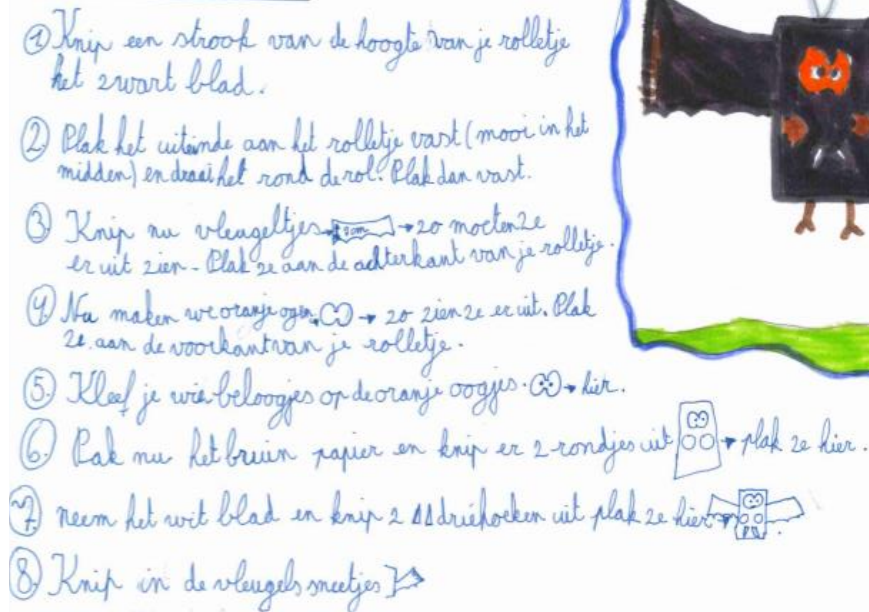 1 Knip een strook van de hoogte van je rolletje
het zwart blad.
2. Plak het uiteinde aan het rolletje vast (mooi in het
midden) en draai het rond de rol. Plak dan vast.
3 Knip nu vleugeltjes → zo moeten ze
er uit zien - Plak ze aan de achterkant van je rolletje.
4 Nu maken we oranje ogen → zo zien ze er uit. Plak
ze aan de voorkant van je rolletje.
5. Kleef je wiebeloogjes op de oranje oogjes. → hier.
6. Pak nu het bruin papier en knip er 2 rondjes uit → plak ze hier.
7. neem het wit blad en knip 2 driehoeken uit plak ze hier
8. Knip in de vleugels sneetjes